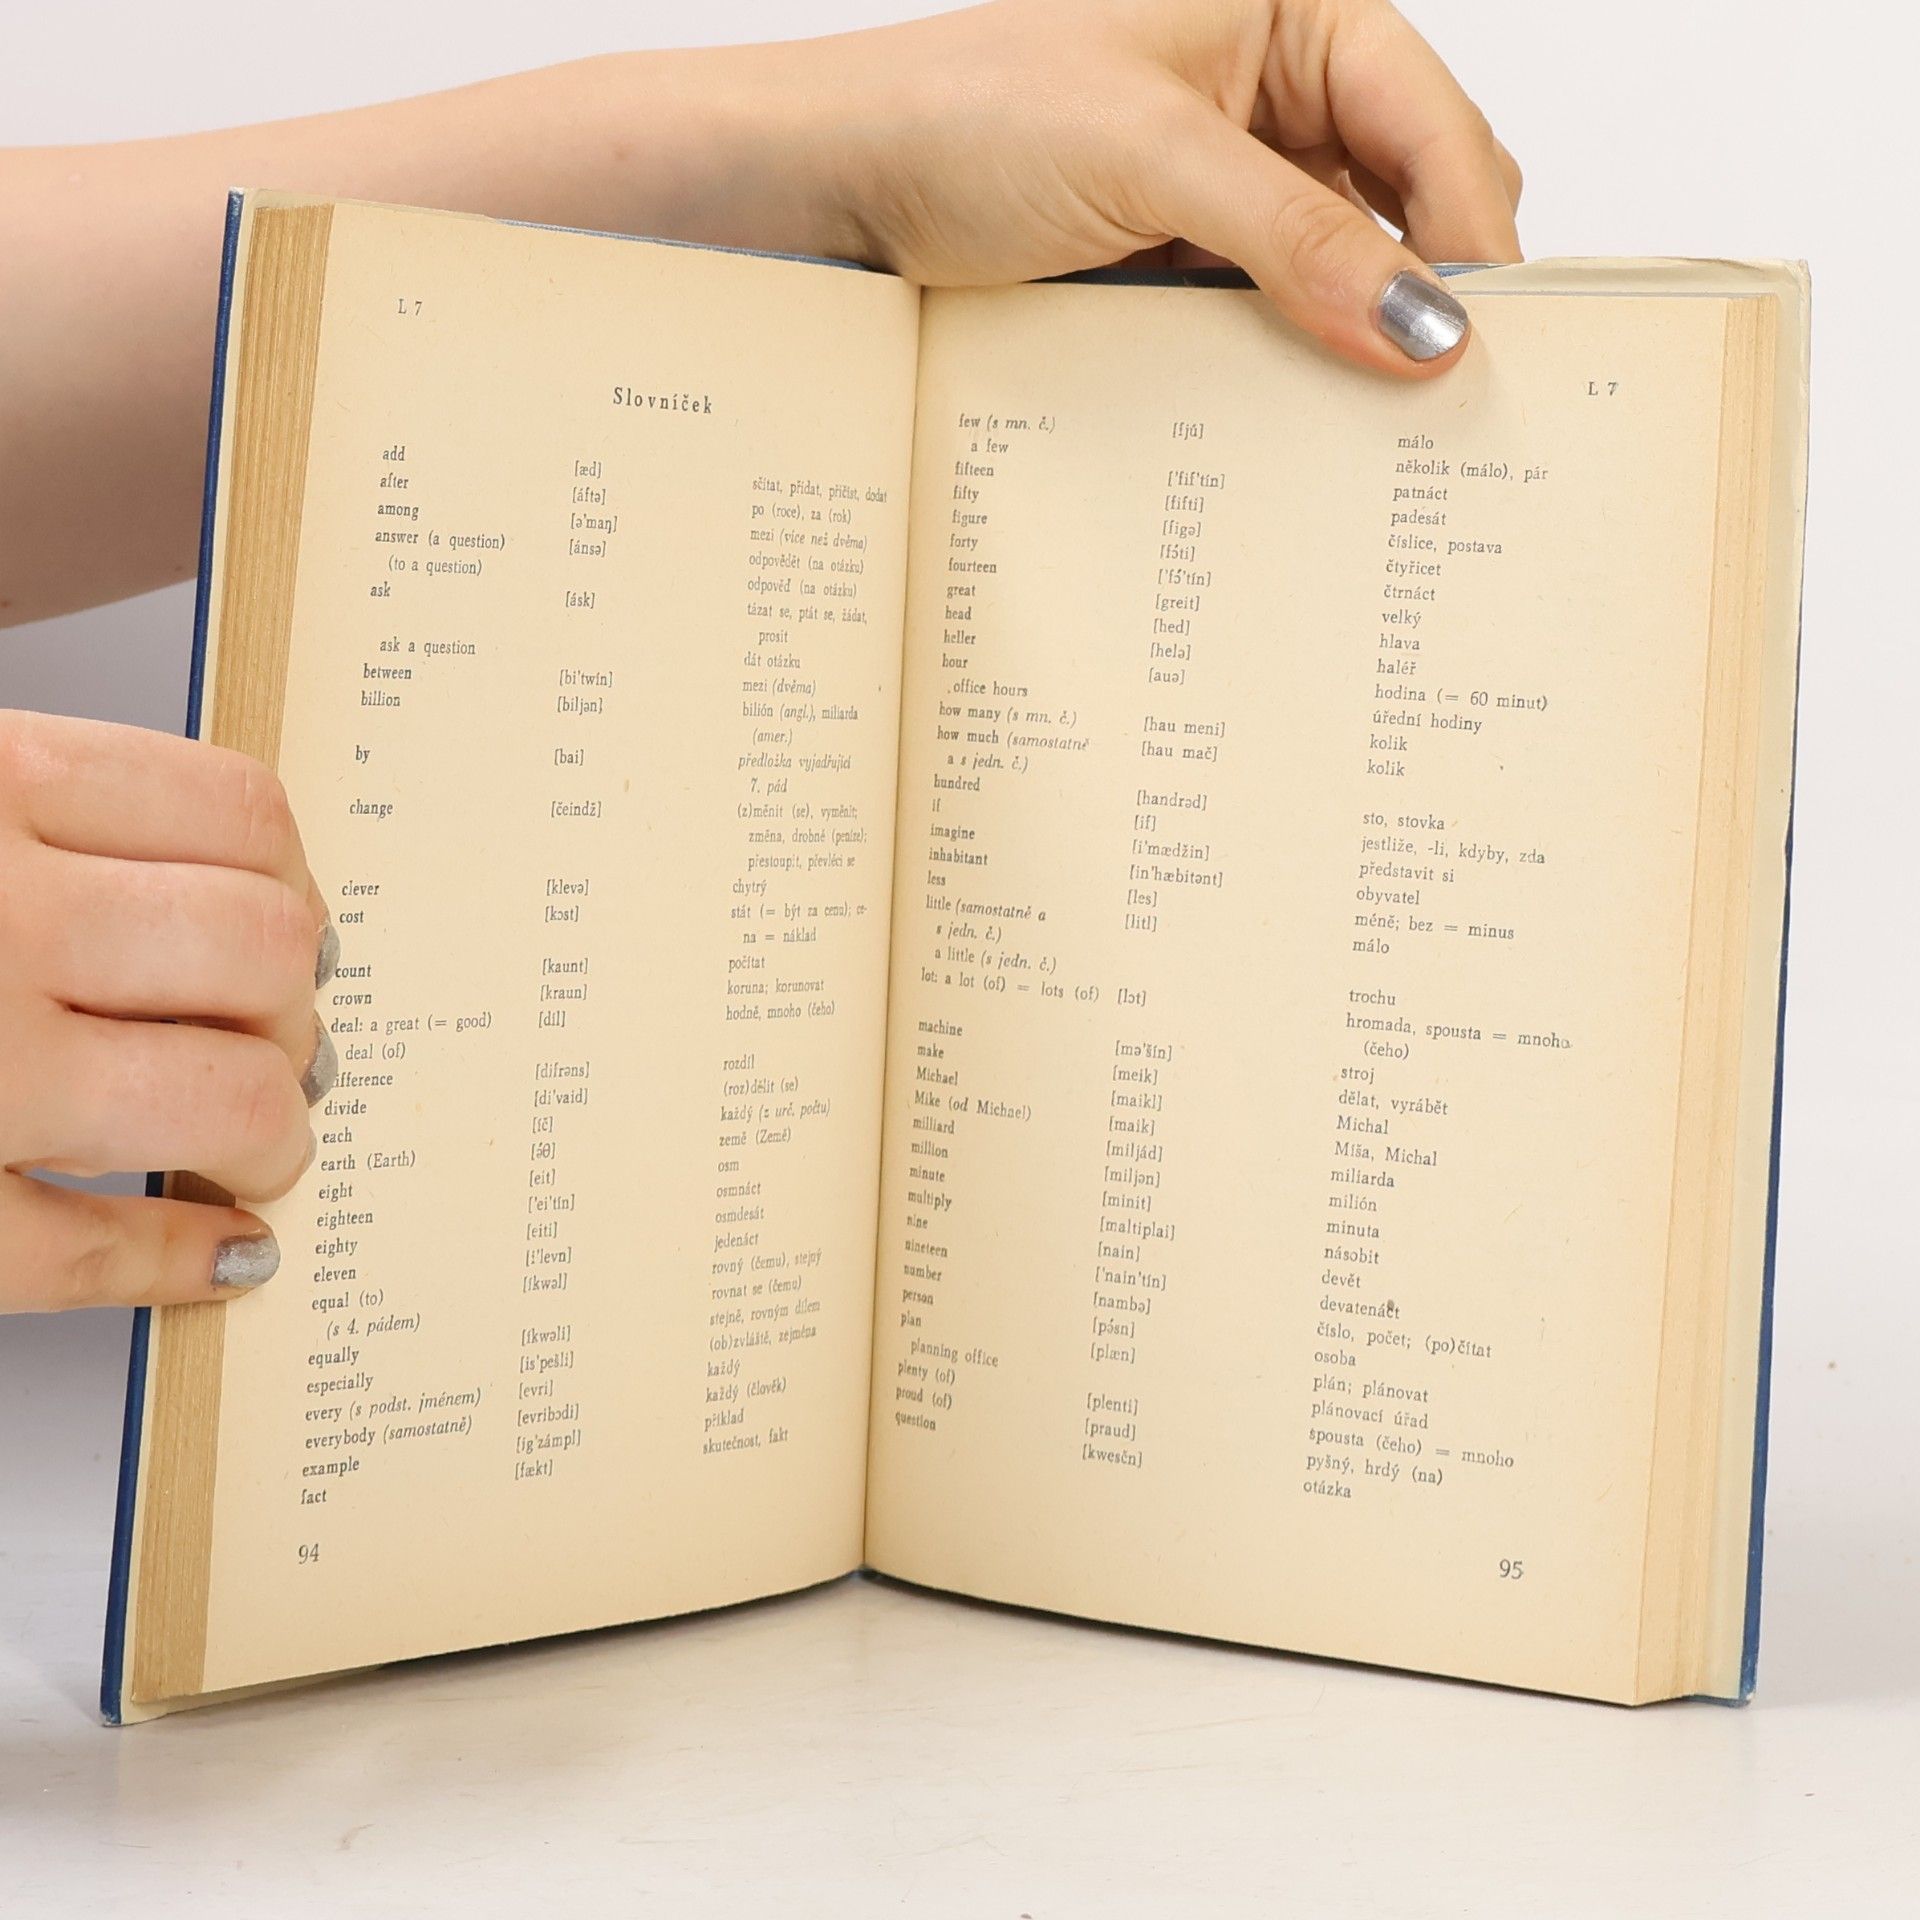 L 7
Slovníček
add [æd] sčítat, přidat, přičíst, dodat
after [áftə] po (roce), za (rok)
among [ə'maŋ] mezi (více než dvěma)
answer (a question) [ánsə] odpovědět (na otázku)
(to a question) odpověď (na otázku)
ask [ásk] tázat se, ptát se, žádat,
prosit
ask a question dát otázku
between [bi'twín] mezi (dvěma)
billion [biljən] bilión (angl.), miliarda
(amer.)
by [bai] předložka vyjadřující
7. pád
change [čeindž] (z)měnit (se), vyměnit;
změna, drobné (peníze);
přestoupit, převléci se
clever [klevə] chytrý
cost [kɔst] stát (= být za cenu); ce-
na = náklad
count [kaunt] počítat
crown [kraun] koruna; korunovat
deal: a great (= good) [díl] hodně, mnoho (čeho)
deal (of)
ifference [difrəns] rozdíl
divide [di'vaid] (roz)dělit (se)
each [íč] každý (z urč. počtu)
earth (Earth) [ə́θ] země (Země)
eight [eit] osm
eighteen ['ei'tín] osmnáct
eighty [eiti] osmdesát
eleven [i'levn] jedenáct
equal (to) [íkwəl] rovný (čemu), stejný
(s 4. pádem) rovnat se (čemu)
equally [íkwəli] stejně, rovným dílem
especially [is'pešli] (ob)zvláště, zejména
every (s podst. jménem) [evri] každý
everybody (samostatně) [evribɔdi] každý (člověk)
example [ig'zámpl] příklad
fact [fækt] skutečnost, fakt
94
L 7
few (s mn. č.) [fjú] málo
a few několik (málo), pár
fifteen ['fif'tín] patnáct
fifty [fifti] padesát
figure [figə] číslice, postava
forty [fɔ́ti] čtyřicet
fourteen ['fɔ́'tín] čtrnáct
great [greit] velký
head [hed] hlava
heller [helə] haléř
hour [auə] hodina (= 60 minut)
office hours úřední hodiny
how many (s mn. č.) [hau meni] kolik
how much (samostatně [hau mač] kolik
a s jedn. č.)
hundred [handrəd] sto, stovka
if [if] jestliže, -li, kdyby, zda
imagine [i'mædžin] představit si
inhabitant [in'hæbitənt] obyvatel
less [les] méně; bez = minus
little (samostatně a [litl] málo
s jedn. č.)
a little (s jedn. č.) trochu
lot: a lot (of) = lots (of) [lɔt] hromada, spousta = mnoho
(čeho)
machine [mə'šín] stroj
make [meik] dělat, vyrábět
Michael [maikl] Michal
Mike (od Michael) [maik] Míša, Michal
milliard [miljád] miliarda
million [miljən] milión
minute [minit] minuta
multiply [maltiplai] násobit
nine [nain] devět
nineteen ['nain'tín] devatenáct
number [nambə] číslo, počet; (po)čítat
person [pə́sn] osoba
plan [plæn] plán; plánovat
planning office plánovací úřad
plenty (of) [plenti] spousta (čeho) = mnoho
proud (of) [praud] pyšný, hrdý (na)
question [kwesčn] otázka
95